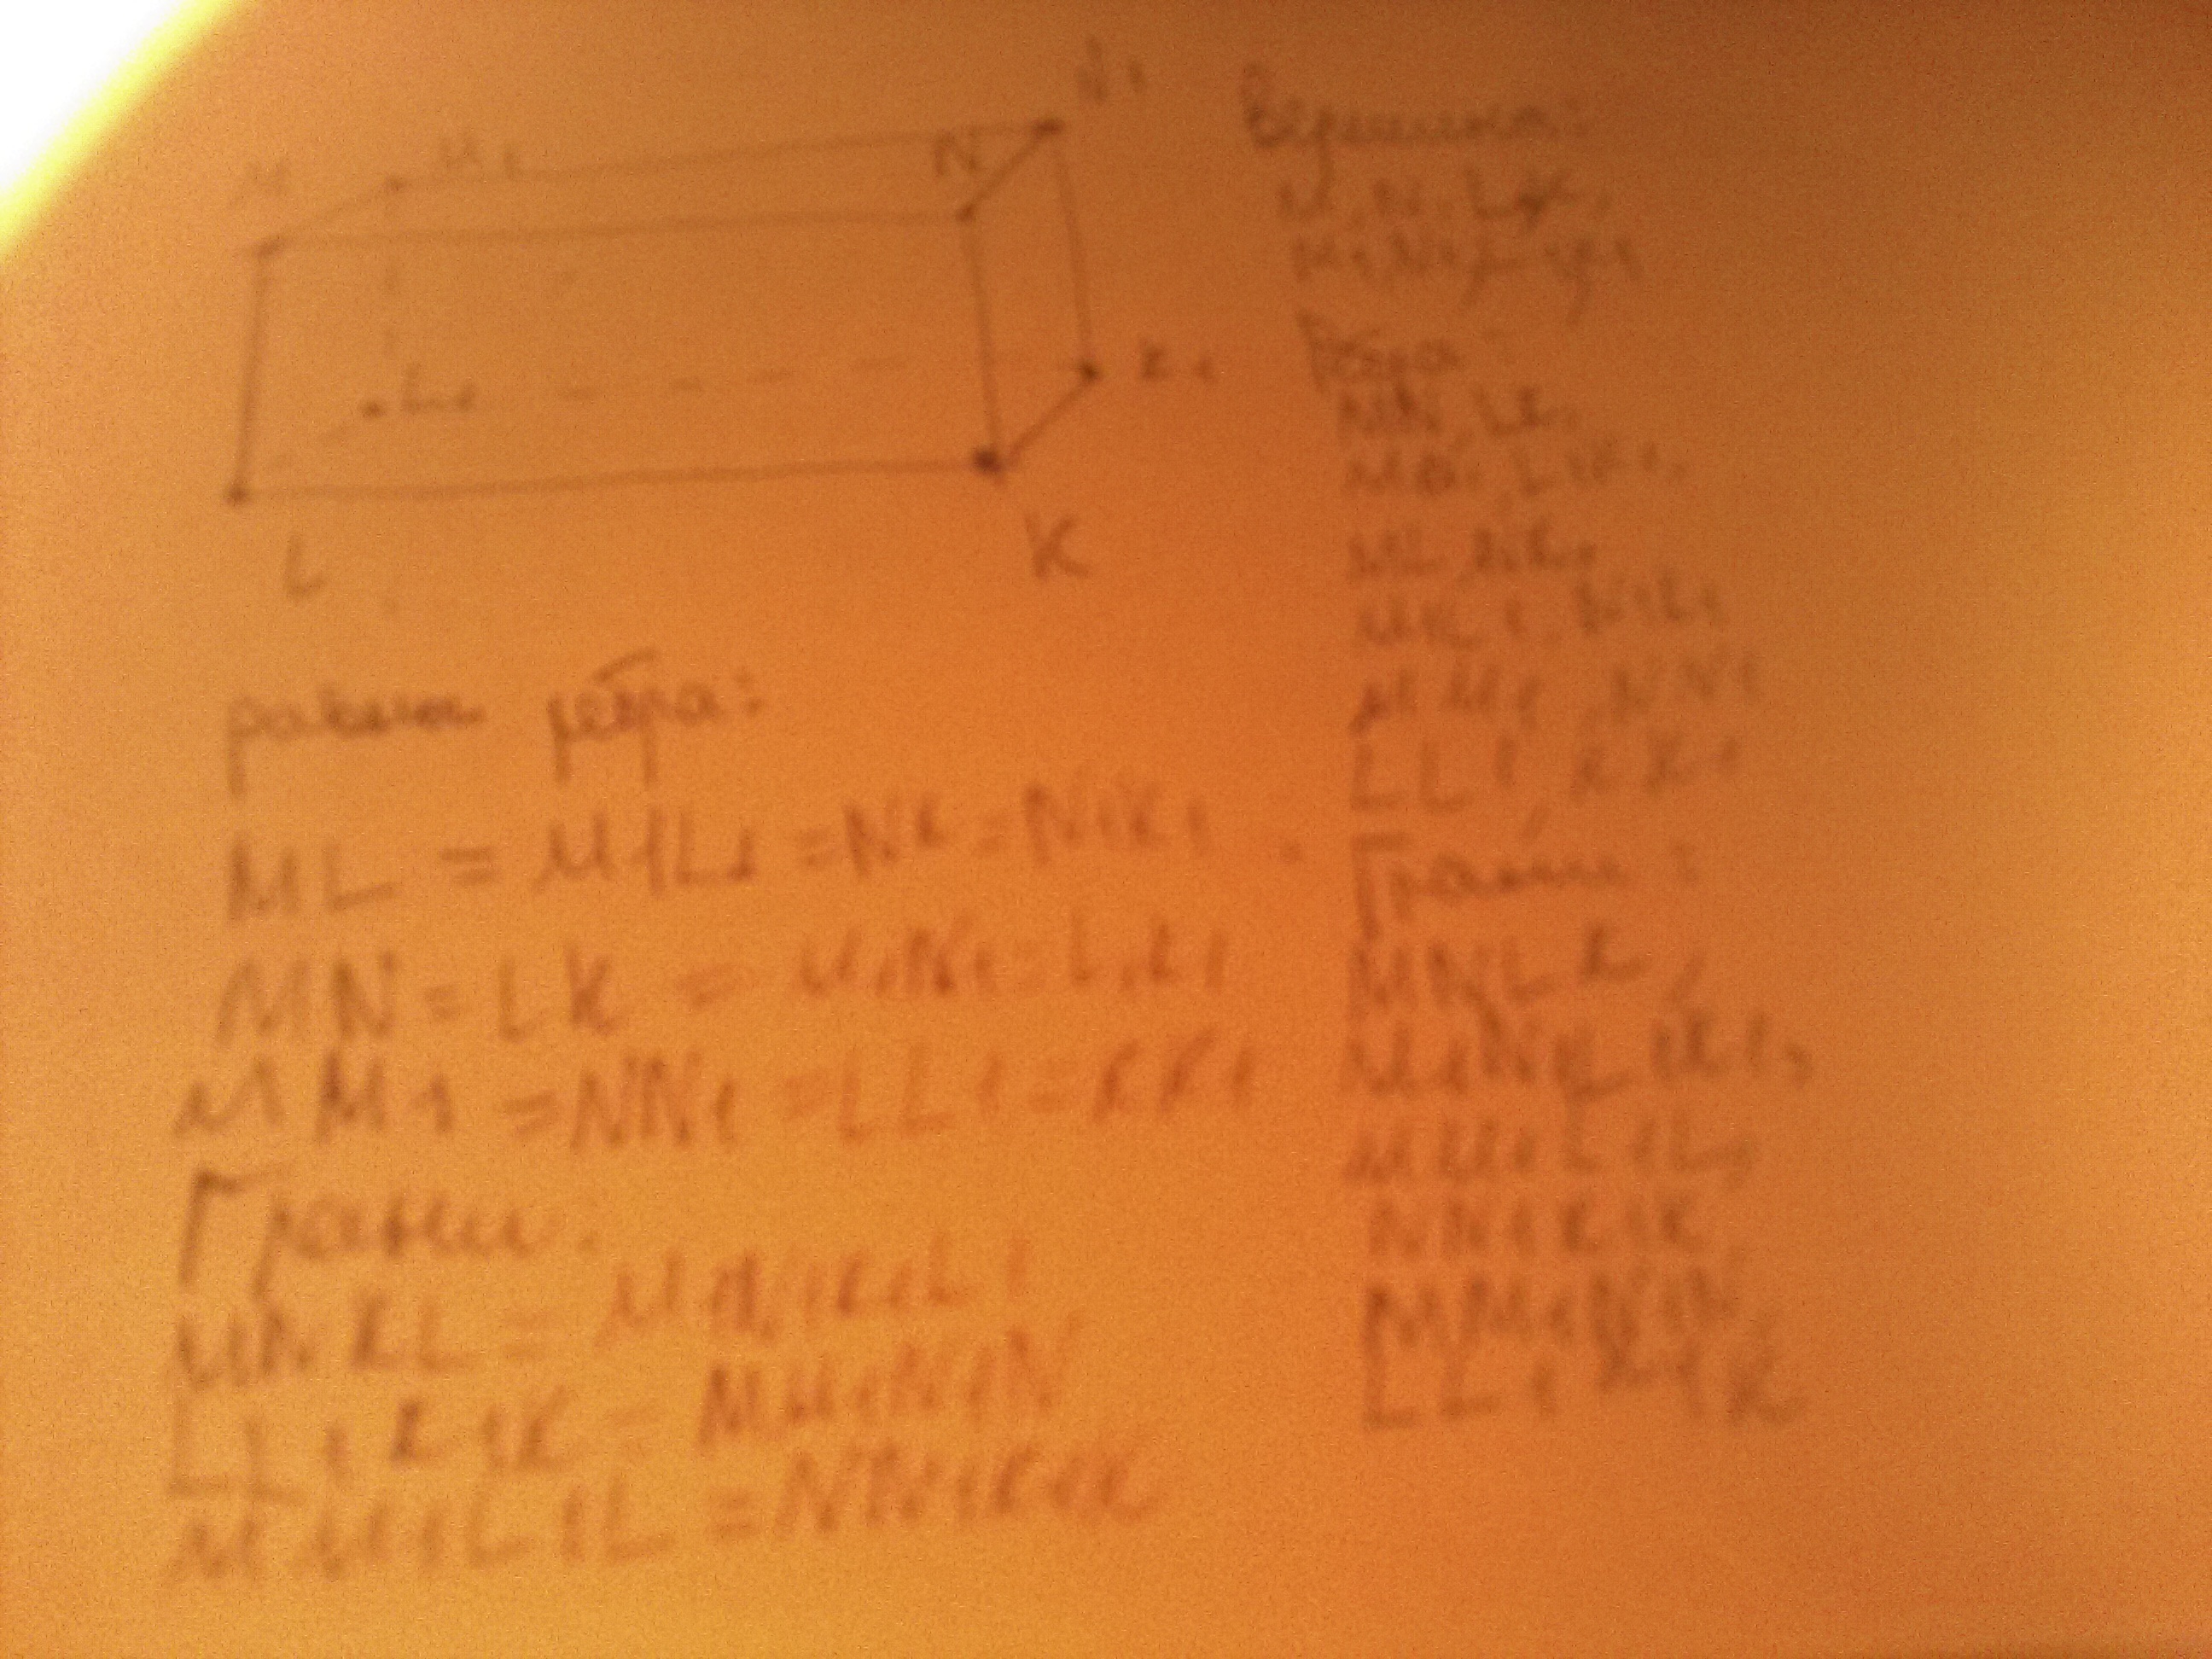 M M1 N N1
L1 K1
L K
равны рёбра:
ML = M1L1 = NK = N1K1
MN = LK = M1N1 = L1K1
MM1 = NN1 = LL1 = KK1
Грани:
MNKL = M1N1K1L1
LL1K1K = MM1N1N
MM1L1L = NN1K1K
Вершины:
M, N, L, K,
M1, N1, L1, K1
Рёбра
MN, LK,
M1N1, L1K1,
ML, NK,
N1K1
MM1, NN1
LL1, KK1
Грани:
MNLK,
M1N1L1K1,
MM1L1L,
NN1K1K
MM1N1N
LL1K1K